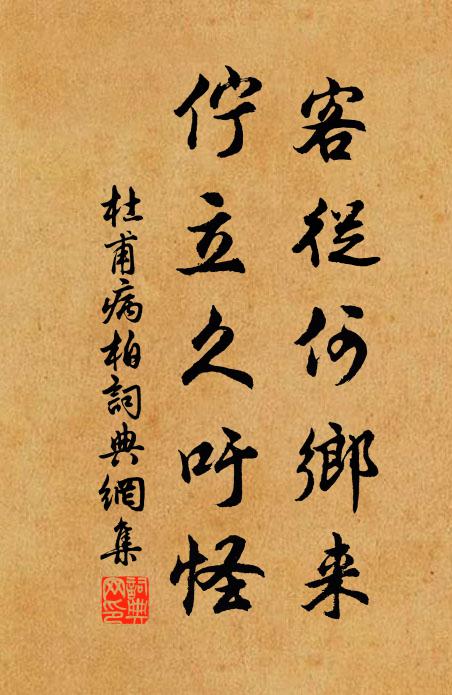 客從何鄉来
佇立久吁怪
杜甫病柏詞典網集
詞典
网印